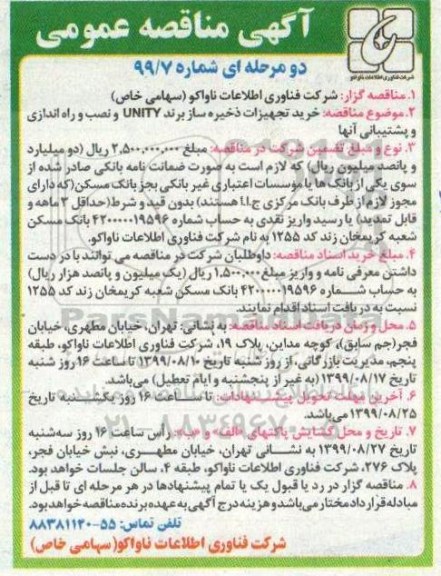 آگهی مناقصه عمومی
شرکت فناوری اطلاعات ناواکو
دو مرحله ای شماره ۹۹/۷
۱. مناقصه گزار: شرکت فناوری اطلاعات ناواکو (سهامی خاص)
۲. موضوع مناقصه: خرید تجهیزات ذخیره ساز برند UNITY و نصب و راه اندازی
و پشتیبانی آنها
۳. نوع و مبلغ تضمین شرکت در مناقصه: مبلغ ۲,۵۰۰,۰۰۰,۰۰۰ ریال (دو میلیارد
و پانصد میلیون ریال) که لازم است به صورت ضمانت نامه بانکی صادر شده از
سوی یکی از بانک ها یا موسسات اعتباری غیر بانکی بجز بانک مسکن (که دارای
مجوز لازم از طرف بانک مرکزی ج.ا.ا هستند) بدون قید و شرط (حداقل ۳ ماهه و
قابل تمدید) یا رسید واریز نقدی به حساب شماره ۴۲۰۰۰۰۰۱۹۵۹۶ بانک مسکن
شعبه کریمخان زند کد ۱۲۵۵ به نام شرکت فناوری اطلاعات ناواکو.
۴. مبلغ خرید اسناد مناقصه: داوطلبان شرکت در مناقصه می توانند با در دست
داشتن معرفی نامه و واریز مبلغ ۱,۵۰۰,۰۰۰ ریال (یک میلیون و پانصد هزار ریال)
به حساب شماره ۴۲۰۰۰۰۰۱۹۵۹۶ بانک مسکن شعبه کریمخان زند کد ۱۲۵۵
نسبت به دریافت اسناد اقدام نمایند.
۵. محل و زمان دریافت اسناد مناقصه: به نشانی: تهران، خیابان مطهری، خیابان
فجر(جم سابق)، کوچه مداین، پلاک ۱۹، شرکت فناوری اطلاعات ناواکو، طبقه
پنجم، مدیریت بازرگانی، از روز شنبه تاریخ ۱۳۹۹/۰۸/۱۰ تا ساعت ۱۶ روز شنبه
تاریخ ۱۳۹۹/۰۸/۱۷ (به غیر از پنجشنبه و ایام تعطیل) می‌باشد.
۶. آخرین مهلت تحویل پیشنهادات: تا ساعت ۱۶ روز یکشنبه تاریخ
۱۳۹۹/۰۸/۲۵ می‌باشد.
۷. تاریخ و محل گشایش پاکتهای «الف» و «ب»: رأس ساعت ۱۶ روز سه‌شنبه
تاریخ ۱۳۹۹/۰۸/۲۷ به نشانی تهران، خیابان مطهری، نبش خیابان فجر،
پلاک ۲۷۶، شرکت فناوری اطلاعات ناواکو، طبقه ۴، سالن جلسات خواهد بود.
۸. مناقصه گزار در رد یا قبول یک یا تمام پیشنهادها در هر مرحله ای تا قبل از
مبادله قرارداد مختار می‌باشد و هزینه درج آگهی به عهده برنده مناقصه خواهد بود.
تلفن تماس: ۵۵-۸۸۳۸۱۱۳۰
شرکت فناوری اطلاعات ناواکو (سهامی خاص)
ParsNamadData
۰۲۱-۸۸۳۴۹۶۷۰